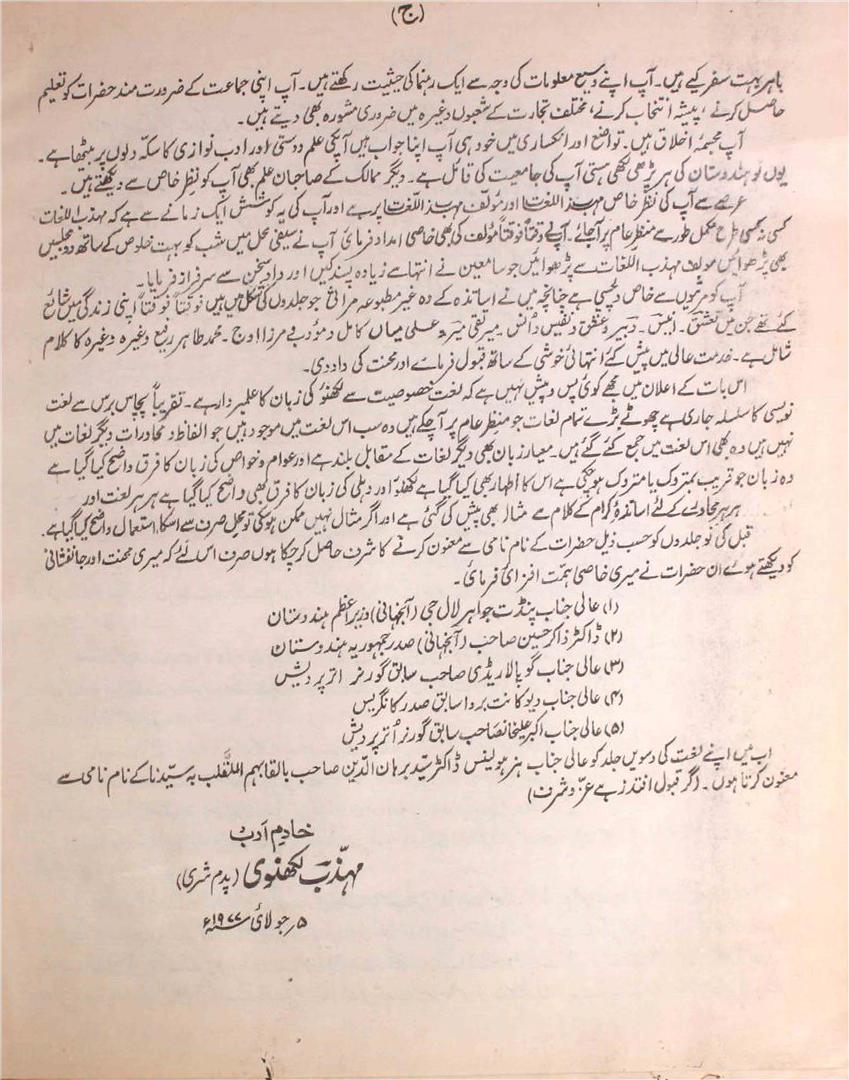 (ج)
باہر بہت سفر کیے ہیں۔ آپ اپنے وسیع معلومات کی وجہ سے ایک رہنما کی حیثیت رکھتے ہیں۔ آپ اپنی جماعت کے ضرورت مند حضرات کو تعلیم
حاصل کرنے، پیشہ انتخاب کرنے، مختلف تجارت کے شعبوں وغیرہ میں ضروری مشورہ بھی دیتے ہیں۔
آپ مجسمۂ اخلاق ہیں۔ تواضع اور انکساری میں خود ہی آپ اپنا جواب ہیں آپکی علم دوستی اور ادب نوازی کا سکّہ دلوں پر بیٹھا ہے۔
یوں تو ہندوستان کی ہر پڑھی لکھی ہستی آپ کی جامعیت کی قائل ہے۔ دیگر ممالک کے صاحبان علم بھی آپ کو نظر خاص سے دیکھتے ہیں۔
عرصے سے آپ کی نظر خاص مہذب اللغات اور مؤلف مہذب اللغات پر ہے اور آپ کی یہ کوشش ایک زمانے سے ہے کہ مہذب اللغات
کسی نہ کسی طرح مکمل طور سے منظر عام پر آجائے۔ آپ نے وقتاً فوقتاً مؤلف کی بھی خاصی امداد فرمائی آپ نے سیفی محل میں شب کو بہت خلوص کے ساتھ دو مجلسیں
بھی پڑھوائیں مؤلف مہذب اللغات سے پڑھوائیں جو سامعین نے انتہا سے زیادہ پسند کیں اور داد سخن سے سرفراز فرمایا۔
آپ کو مرثیوں سے خاص دلچسپی ہے چنانچہ میں نے اساتذہ کے وہ غیر مطبوعہ مراثی جو جلدوں کی شکل میں ہیں وقتاً فوقتاً اپنی زندگی میں شائع
کئے تھے جن میں تعشق۔ انیس۔ دبیر و عشق و نفیس و انس۔ میر تقی میر علی میاں کامل و مؤدب مرزا اوج۔ محمد طاہر رفیع وغیرہ وغیرہ کا کلام
شامل ہے۔ خدمت عالی میں پیش کئے انتہائی خوشی کے ساتھ قبول فرمائے اور محنت کی داد دی۔
اس بات کے اعلان میں مجھے کوئی پس و پیش نہیں ہے کہ لغت خصوصیت سے لکھنؤ کی زبان کا علمبردار ہے۔ تقریباً پچاس برس سے لغت
نویسی کا سلسلہ جاری ہے چھوٹے بڑے تمام لغات جو منظر عام پر آچکے ہیں وہ سب اس لغت میں موجود ہیں جو الفاظ و محاورات دیگر لغات میں
نہیں ہیں وہ بھی اس لغت میں جمع کئے گئے ہیں۔ معیار زبان بھی دیگر لغات کے مقابل بلند ہے اور عوام و خواص کی زبان کا فرق واضح کیا گیا ہے
وہ زبان جو قریب بمتروک یا متروک ہوچکی ہے اس کا اظہار بھی کیا گیا ہے لکھنؤ اور دہلی کی زبان کا فرق بھی واضح کیا گیا ہے ہر ہر لغت اور
ہر ہر محاورے کے لئے اساتذۂ کرام کے کلام سے مثال بھی پیش کی گئی ہے اور اگر مثال نہیں ممکن ہوسکی تو محل صرف سے اسکا استعمال واضح کیا گیا ہے۔
قبل کی نو جلدوں کو حسب ذیل حضرات کے نام نامی سے معنون کرنے کا شرف حاصل کرچکا ہوں صرف اس لئے کہ میری محنت اور جانفشانی
کو دیکھتے ہوئے ان حضرات نے میری خاصی ہمّت افزائی فرمائی۔
(۱) عالی جناب پنڈت جواہر لال جی (آنجہانی) وزیر اعظم ہندوستان
(۲) ڈاکٹر ذاکر حسین صاحب (آنجہانی) صدر جمہوریہ ہندوستان
(۳) عالی جناب گوپالا ریڈی صاحب سابق گورنر اتر پردیش
(۴) عالی جناب دیوکانت بروا سابق صدر کانگریس
(۵) عالی جناب اکبر علیخانصاحب سابق گورنر اُتر پردیش
اب میں اپنے لغت کی دسویں جلد کو عالی جناب ہز ہولینس ڈاکٹر سیّد برہان الدّین صاحب بالقابہم الملقّب بہ سیّدنا کے نام نامی سے
معنون کرتا ہوں۔ (گر قبول افتد زہے عزّ و شرف)
خادم ادب
مہذّب لکھنوی (پدم شری)
۵ر جولائی ۱۹۷۷ء